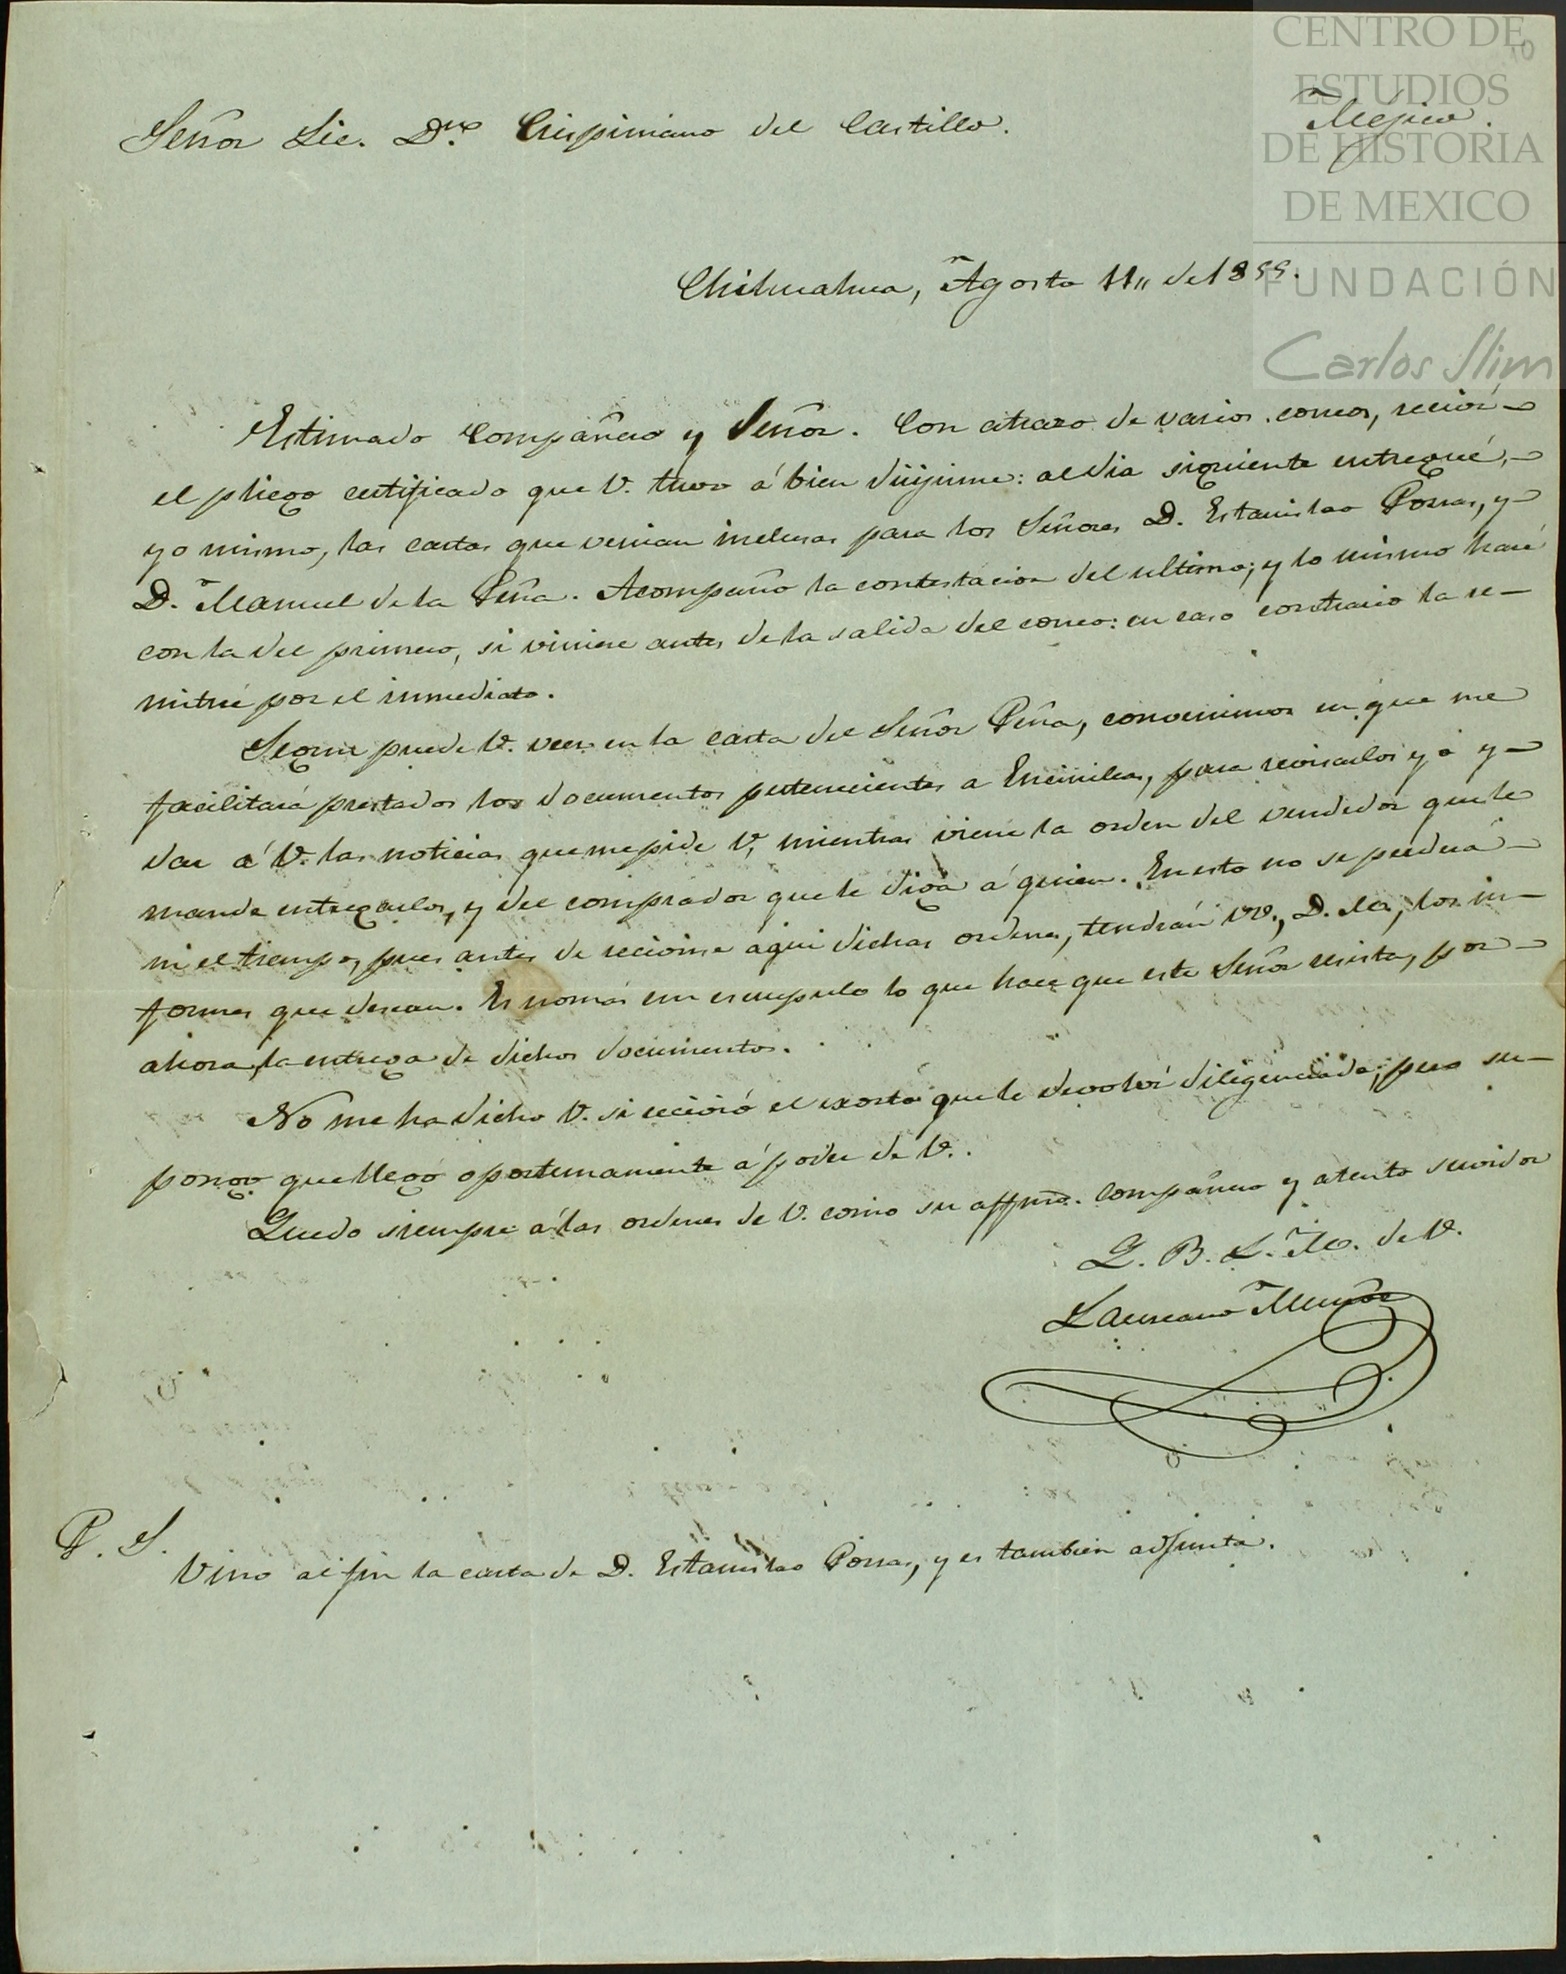 CENTRO DE
ESTUDIOS
DE HISTORIA
DE MEXICO
FUNDACIÓN
Carlos Slim
10
Señor Lic. Dn. Crispiniano del Castillo.
Méjico.
Chihuahua, Agosto 11,, de 1855.
Estimado Compañero y Señor. Con atrazo de varios correos, reciví
el pliego certificado que V. tuvo á bien dirijirme: al dia siguiente entregué,
yo mismo, las cartas que venian inclusas para los Señores D. Estanislao Porras, y
D. Manuel de la Peña. Acompaño la contestacion del ultimo; y lo mismo haré
con la del primero, si viniere antes de la salida del correo: en caso contrario la re-
mitiré por el inmediato.
Segun puede V. veer en la carta del Señor Peña, convenimos en que me
facilitará prestados los documentos pertenecientes a Encinillas, para revisarlos yo y
dar á V. las noticias que me pide V, mientras viene la orden del vendedor que le
mande entregarlos, y del comprador que le diga á quien. En esto no se perderá
ni el tiempo, pues antes de recivirse aqui dichas ordenes, tendrán VV., D. M., los in-
formes que desean. Es nomás un escrupulo lo que hace que este Señor resista, por
ahora, la entrega de dichos documentos.
No me ha dicho V. si recivió el exorto que le devolví diligenciado; pero su-
pongo que llegó oportunamente á poder de V..
Quedo siempre á las ordenes de V. como su affmo. Compañero y atento servidor
Q. B. L. M. de V.
Laureano Muñoz
P. S.
Vino al fin la carta de D. Estanislao Porras, y es tambien adjunta.